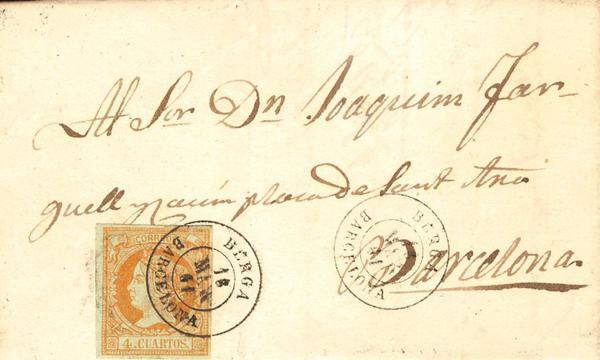 Al Sor Dn Joaquim Far-
guell y plaça de Sant Ana
Barcelona
CORREOS
4 CUARTOS.
BERGA
18
61
BARCELONA
BERGA
BARCELONA